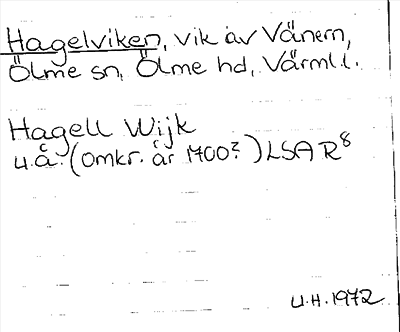 Hagelviken, vik av Vänern,
Ölme sn, Ölme hd, Värml.l.
Hagell Wijk
u.å. (omkr. år 1700?) LSA R8
U.H. 1972